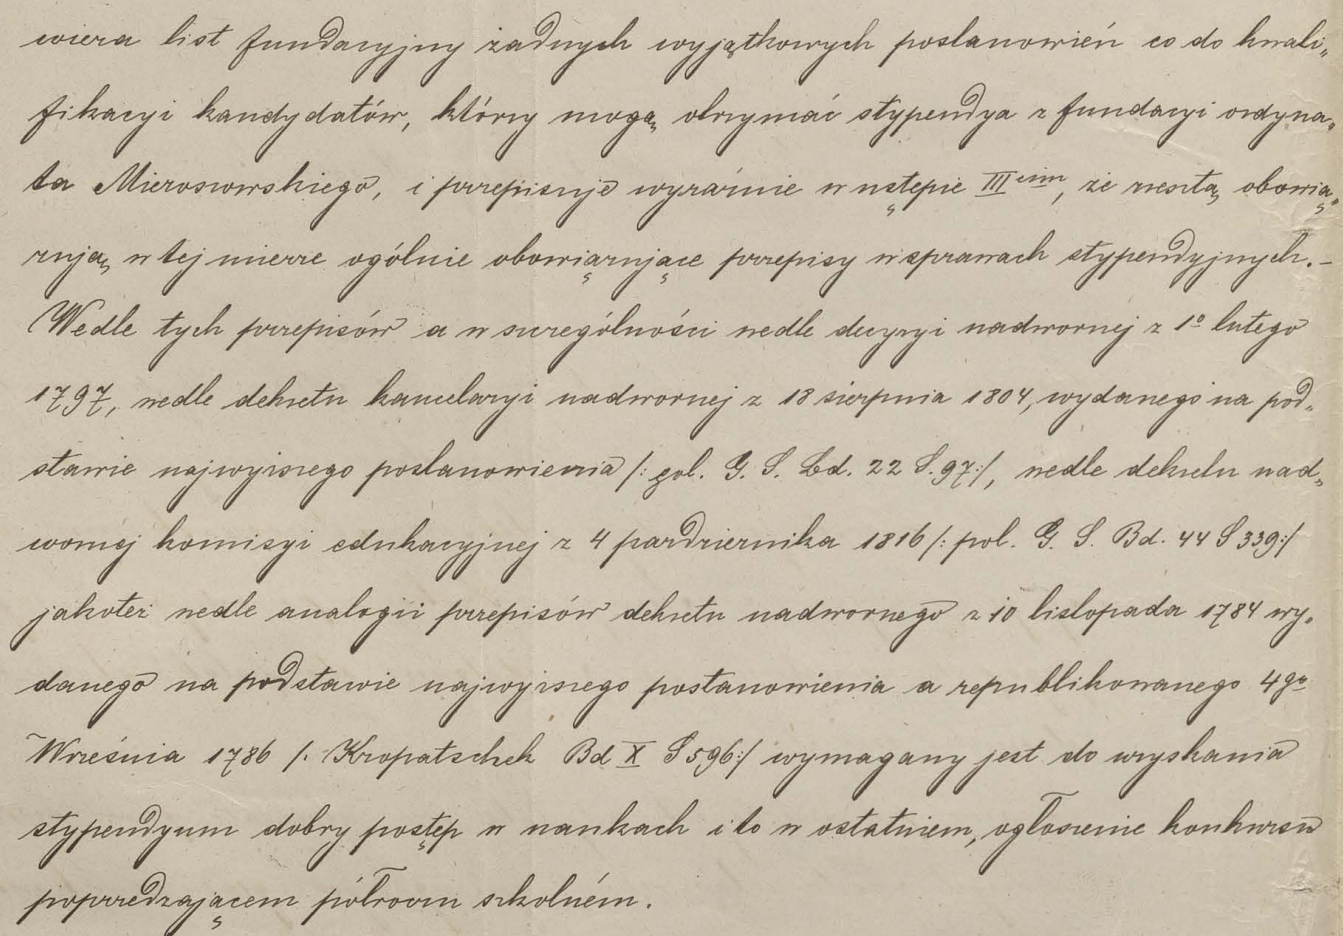 wiera list fundacyjny żadnych wyjątkowych postanowień co do kwali„
fikacyi kandydatów, którzy mogą otrzymać stypendya z fundacyi ordyna„
ta Mieroszowskiego, i przepisuje wyraźnie w ustępie III cim, że zresztą obowią„
zują w tej mierze ogólnie obowiązujące przepisy w sprawach stypendyjnych.–
Wedle tych przepisów a w szczególności wedle decyzyi nadwornej z 1o lutego
1797, wedle dekretu kancelaryi nadwornej z 18 sierpnia 1804, wydanego na pod„
stawie najwyższego postanowienia /: pol. G. S. Bd. 22 S. 97:/, wedle dekretu nad„
wornej komisyi edukacyjnej z 4 października 1816 /: pol. G. S. Bd. 44 S 339:/
jakoteż wedle analogii przepisów dekretu nadwornego z 10 listopada 1784 wy„
danego na podstawie najwyższego postanowienia a republikowanego 4go
Września 1786 /: Kropatschek Bd X S 596:/ wymagany jest do uzyskania
stypendyum dobry postęp w naukach i to w ostatniem, ogłoszenie konkursu
poprzedzającem półroczu szkolném.